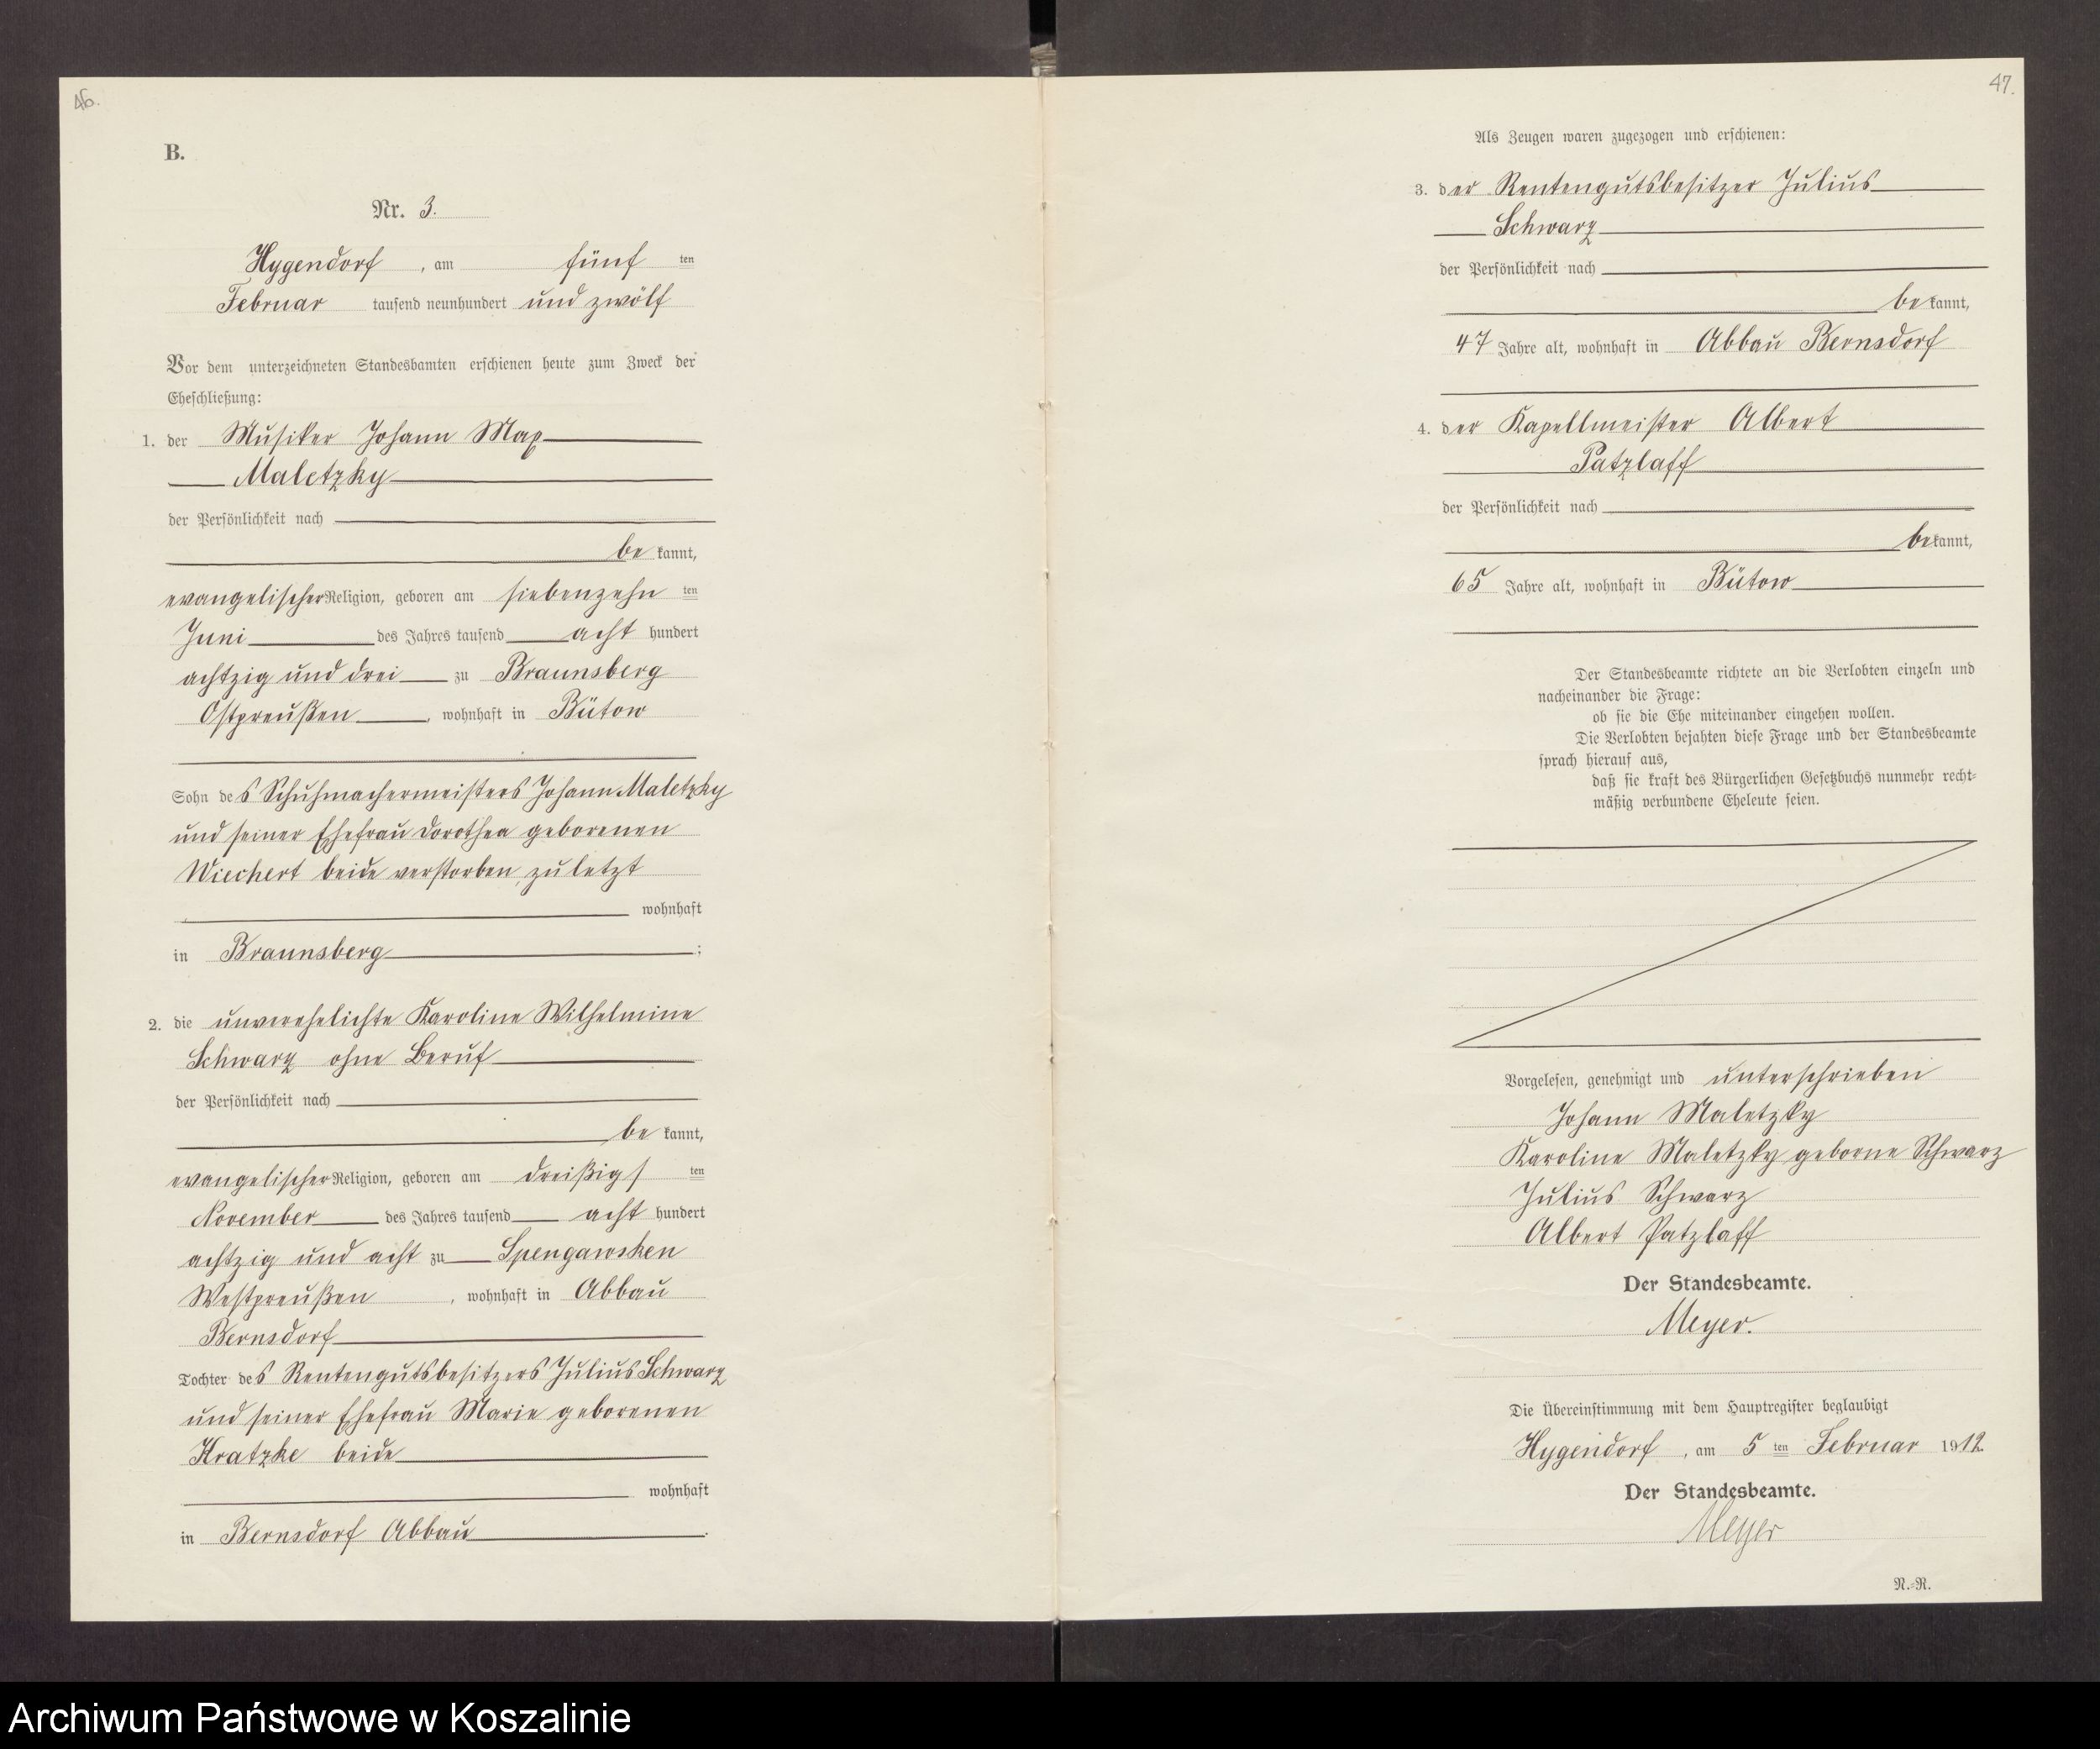 46.
B.
Nr. 3.
Hygendorf, am fünf ten
Februar tausend neunhundert und zwölf
Vor dem unterzeichneten Standesbamten erschienen heute zum Zweck der
Eheschließung:
1. der Musiker Johann Max
Maletzky
der Persönlichkeit nach
be kannt,
evangelischer Religion, geboren am siebenzehn ten
Juni des Jahres tausend acht hundert
achtzig und drei zu Braunsberg
Ostpreußen, wohnhaft in Bütow
Sohn des Schuhmachermeisters Johann Maletzky
und seiner Ehefrau Dorothea geborenen
Wiechert beide verstorben, zuletzt
wohnhaft
in Braunsberg;
2. die unverehelichte Karoline Wilhelmine
Schwarz ohne Beruf
der Persönlichkeit nach
be kannt,
evangelischer Religion, geboren am dreißigs ten
November des Jahres tausend acht hundert
achtzig und acht zu Spengawsken
Westpreußen, wohnhaft in Abbau
Bernsdorf
Tochter des Rentengutsbesitzers Julius Schwarz
und seiner Ehefrau Marie geborenen
Kratzke beide
wohnhaft
in Bernsdorf Abbau.
47.
Als Zeugen waren zugezogen und erschienen:
3. der Rentengutsbesitzer Julius
Schwarz
der Persönlichkeit nach
bekannt,
47 Jahre alt, wohnhaft in Abbau Bernsdorf
4. der Kapellmeister Albert
Patzlaff
der Persönlichkeit nach
bekannt,
65 Jahre alt, wohnhaft in Bütow
Der Standesbeamte richtete an die Verlobten einzeln und
nacheinander die Frage:
ob sie die Ehe miteinander eingehen wollen.
Die Verlobten bejahten diese Frage und der Standesbeamte
sprach hierauf aus,
daß sie kraft des Bürgerlichen Gesetzbuchs nunmehr recht-
mäßig verbundene Eheleute seien.
Vorgelesen, genehmigt und unterschrieben
Johann Maletzky
Karoline Maletzky geborne Schwarz
Julius Schwarz
Albert Patzlaff
Der Standesbeamte.
Meyer.
Die Übereinstimmung mit dem Hauptregister beglaubigt
Hygendorf, am 5 ten Februar 1912.
Der Standesbeamte.
Meyer
N.-R.
Archiwum Państwowe w Koszalinie